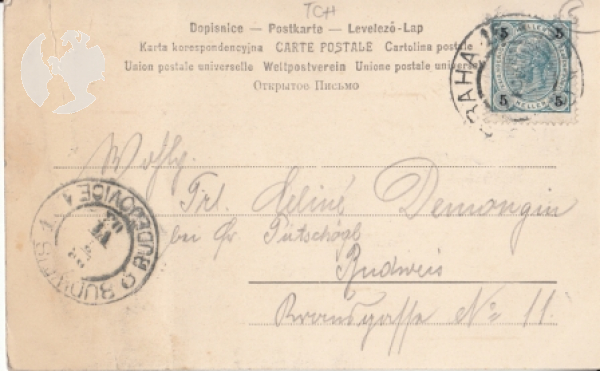 TCH
Dopisnice — Postkarte — Levelező-Lap
Karta korespondencyjna CARTE POSTALE Cartolina postale
Union postale universelle Weltpostverein Unione postale univers
Открытое Письмо
PRAHA
5 5
5 HELLER 5
Wohlg.
Frl. Celine Demongin
bei Fr
Budweis
No 11.
BUDWEIS 1
BUDĚJOVICE